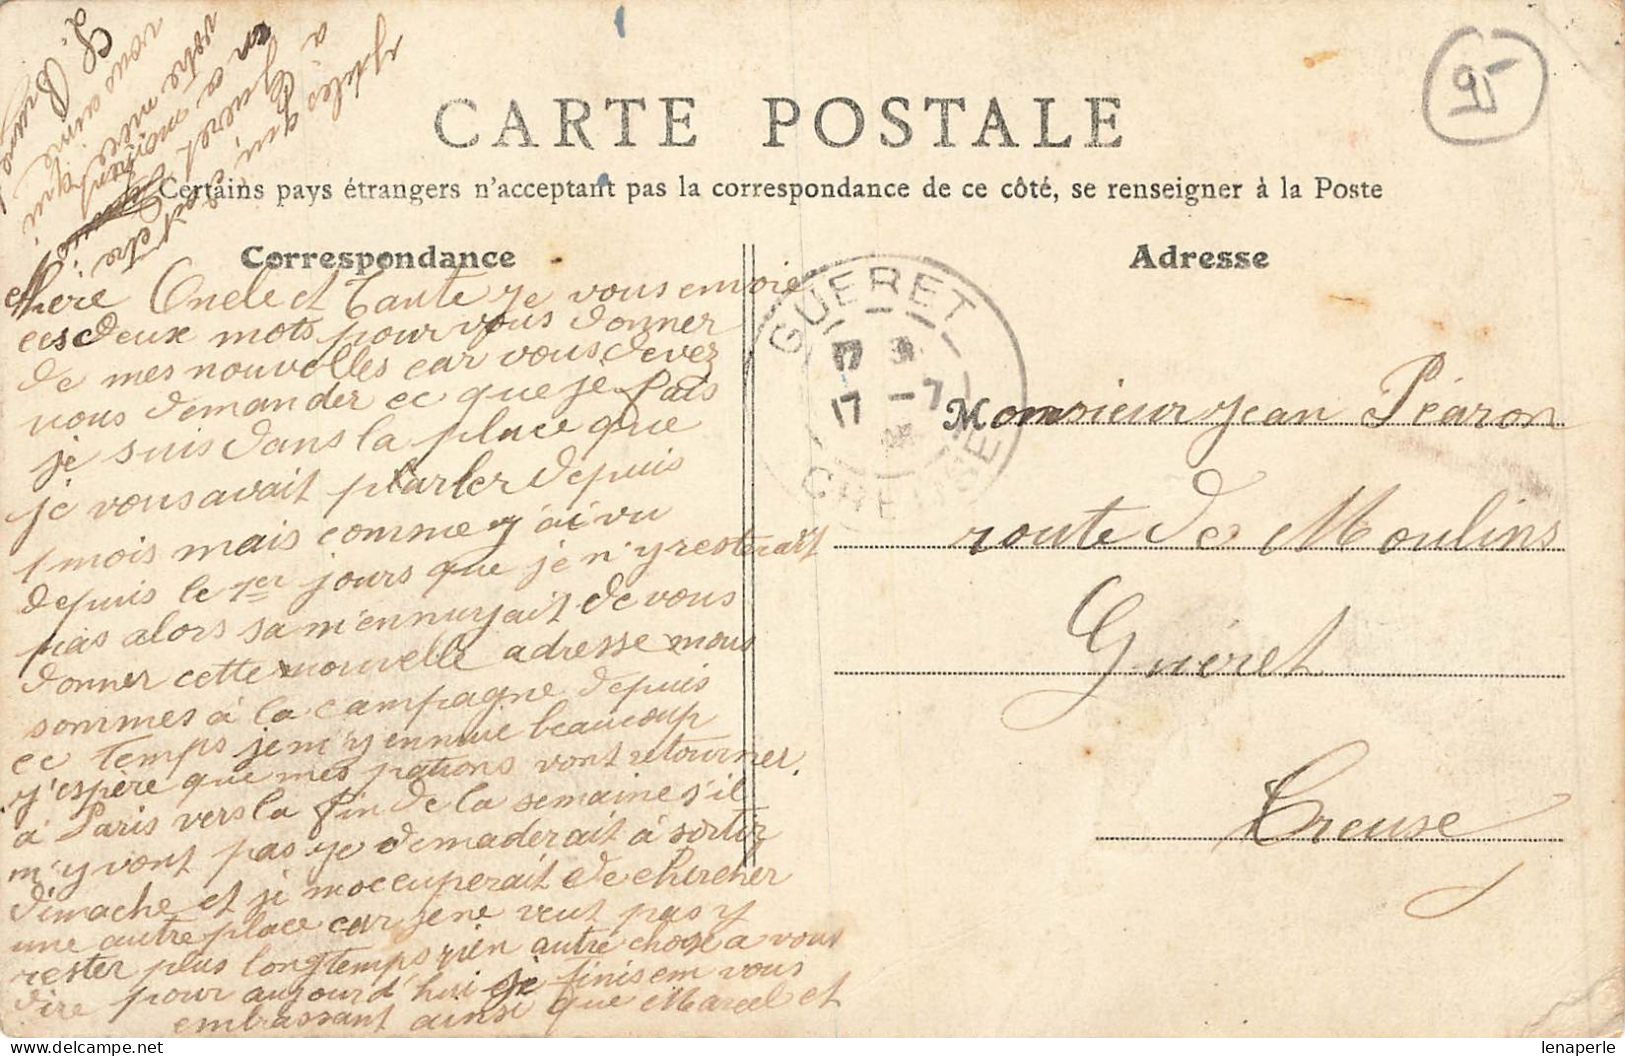 95
CARTE POSTALE
Certains pays étrangers n'acceptant pas la correspondance de ce côté, se renseigner à la Poste
Correspondance
Adresse
chère Oncle et Tante je vous envoie
ces deux mots pour vous donner
de mes nouvolles car vous devez
vous demander ec que je fais
je suis dans la place que
je vous avait parler depuis
1 mois mais comme j'ai vu
depuis le 1er jours que je n'y resterait
pas alors sa m'ennuyait de vous
donner cette nouvelle adresse nous
sommes à la campagne depuis
ec temps je m'y ennuie beaucoup
j'espère que mes patrons vont retourner
à Paris vers la fin de la semaine s'il
m'y vont pas je demaderait à sortir
dimache et je m'occuperait de chercher
une autre place car je ne veut pas y
rester plus longtemps rien autre chose a vous
dire pour aujourd'hui je finis em vous
embrassant ainsi que Marcel et
qui est
à Guéret
en ce moment
votre nièce qui
vous aime
GUERET
17 -7
CREUSE
Monsieur Jean Péaron
route de Moulins
Guéret
Creuse
lenaperle